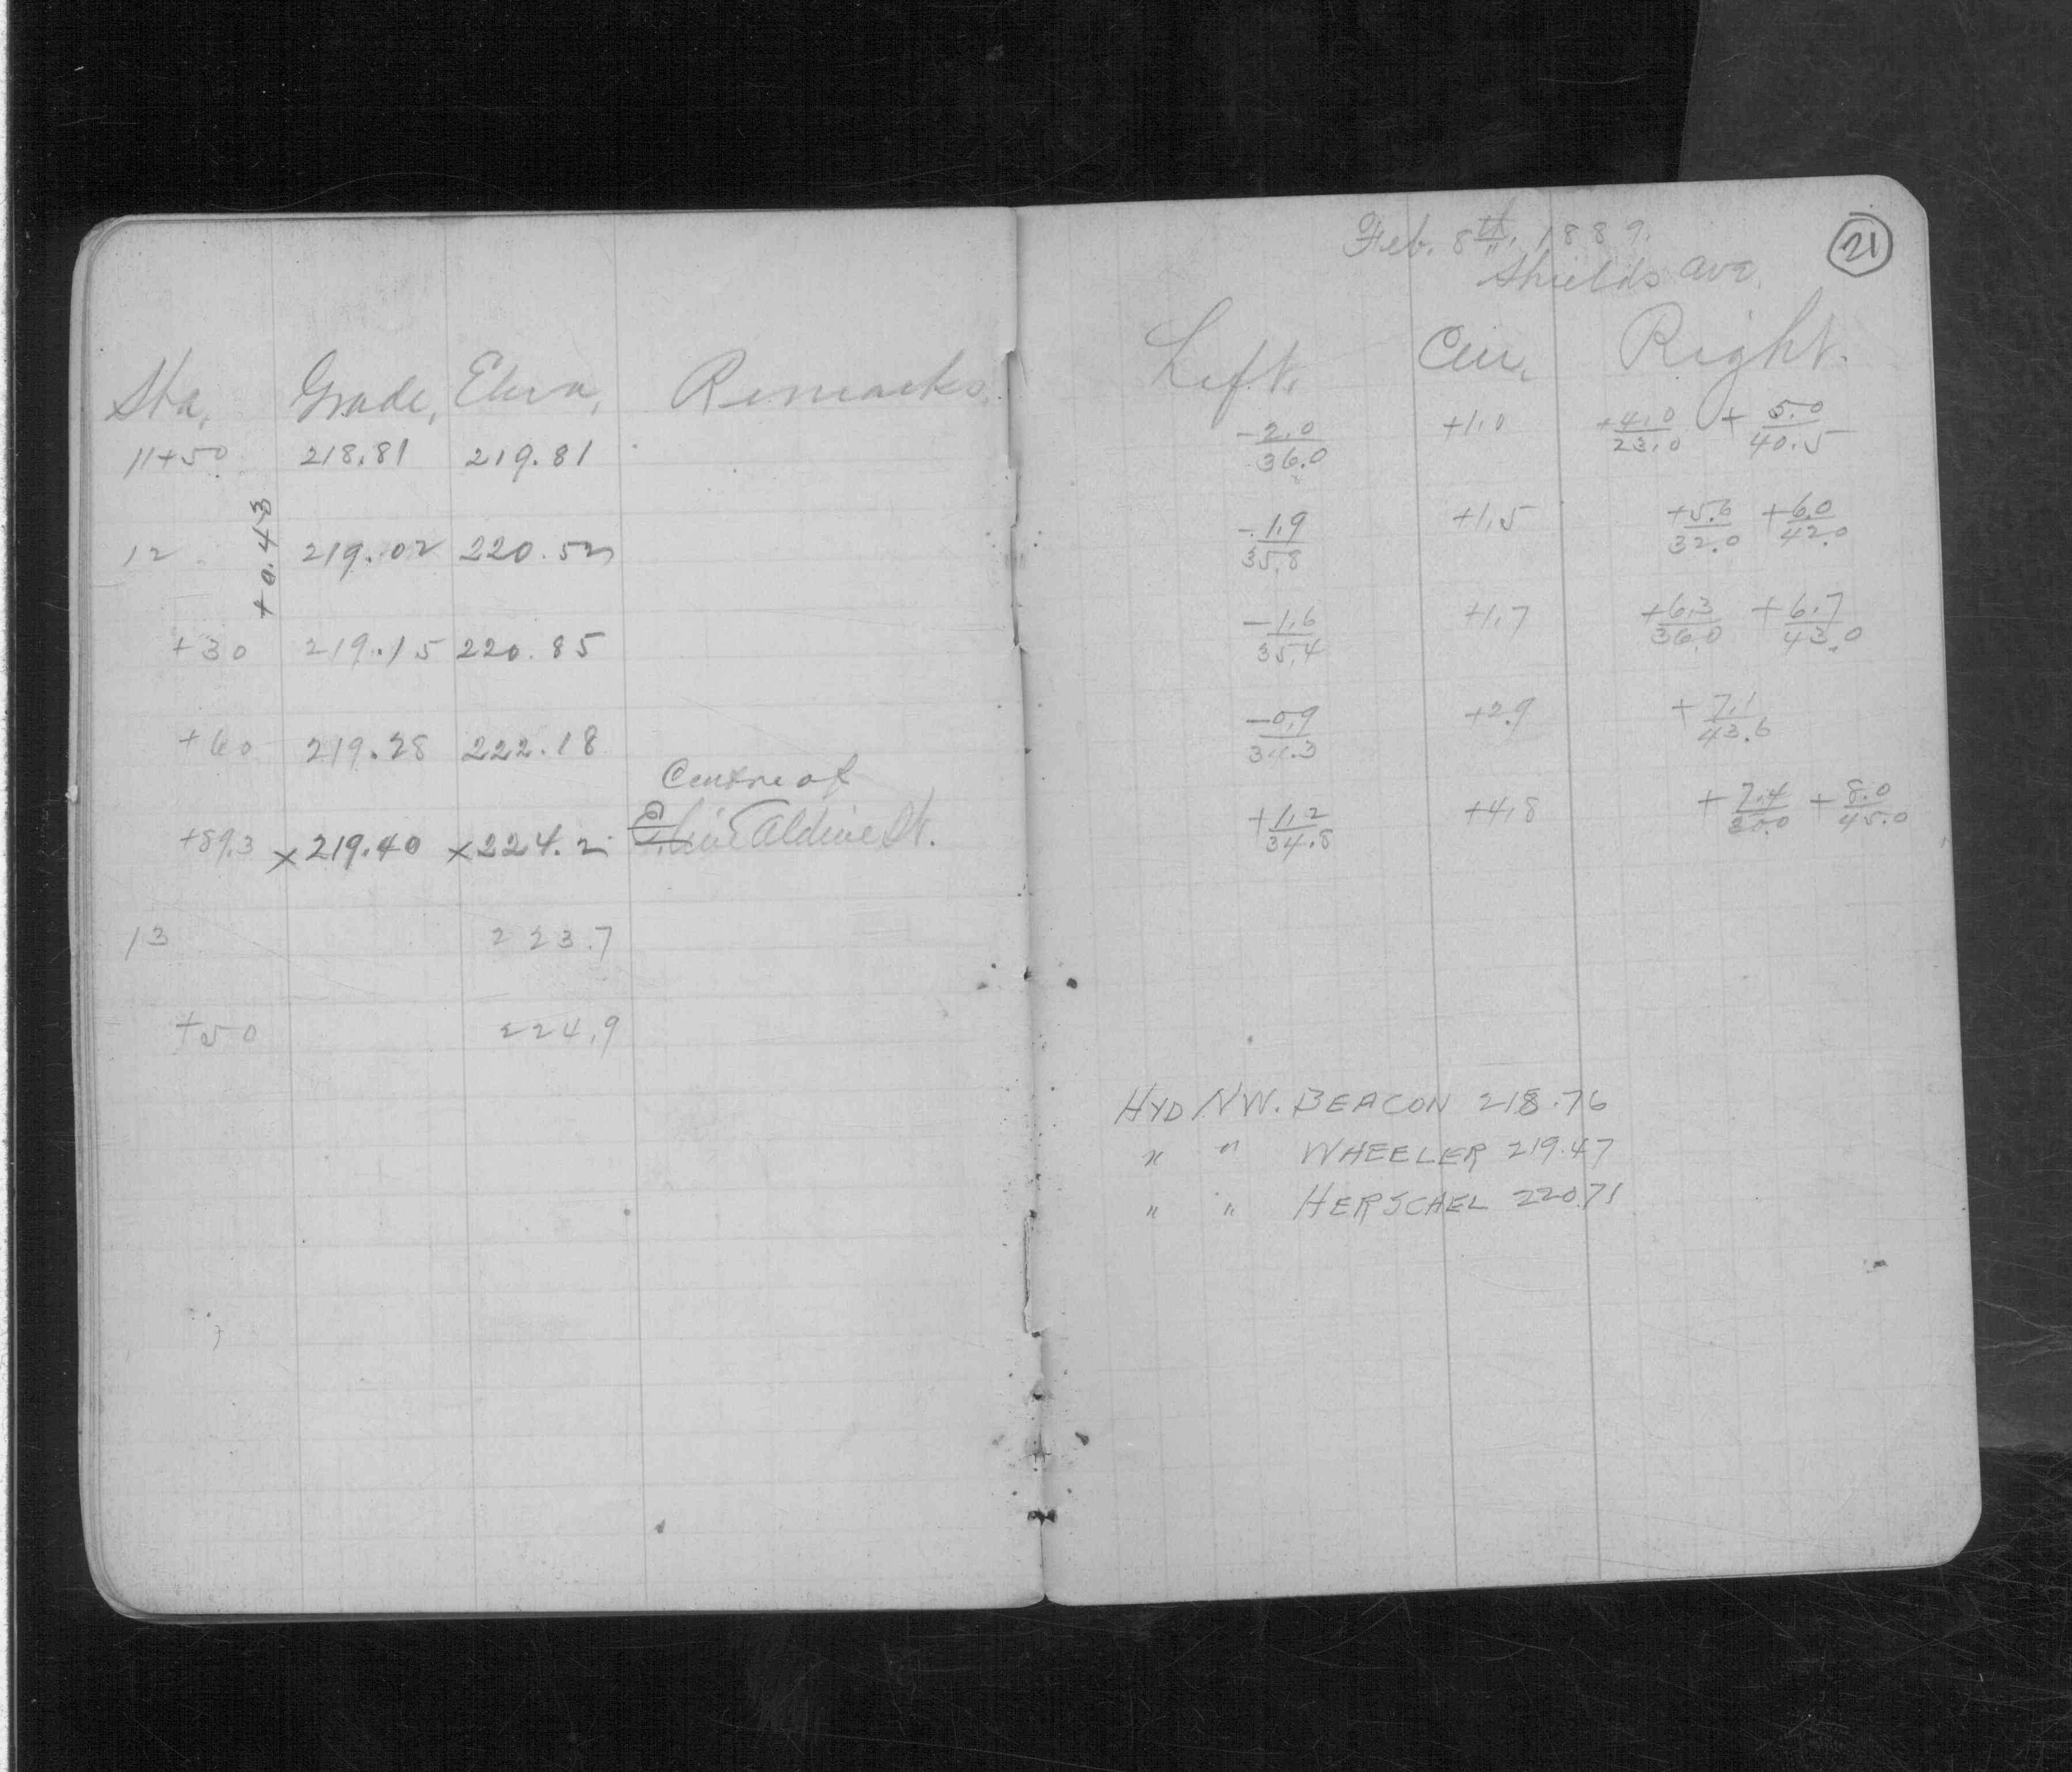 Sta. Grade, Eleva, Remarks.
11+50 218.81 219.81
+0.43
12 219.02 220.52
+30 219.15 220.85
+60 219.28 222.18
Centre of
+89.3 x219.40 x224.2 Line Aldine St.
13 223.7
+50 224.9
Feb. 8th, 1889. 21
Shields Ave.
Left. Cen. Right.
-2.0/36.0 +1.0 +4.0/23.0 +5.0/40.5
-1.9/35.8 +1.5 +5.6/32.0 +6.0/42.0
-1.6/35.4 +1.7 +6.3/36.0 +6.7/43.0
-0.9/34.3 +2.9 +7.1/43.6
+1.2/34.8 +4.8 +7.4/30.0 +8.0/45.0
HYD NW. BEACON 218.76
" " WHEELER 219.47
" " HERSCHEL 220.71